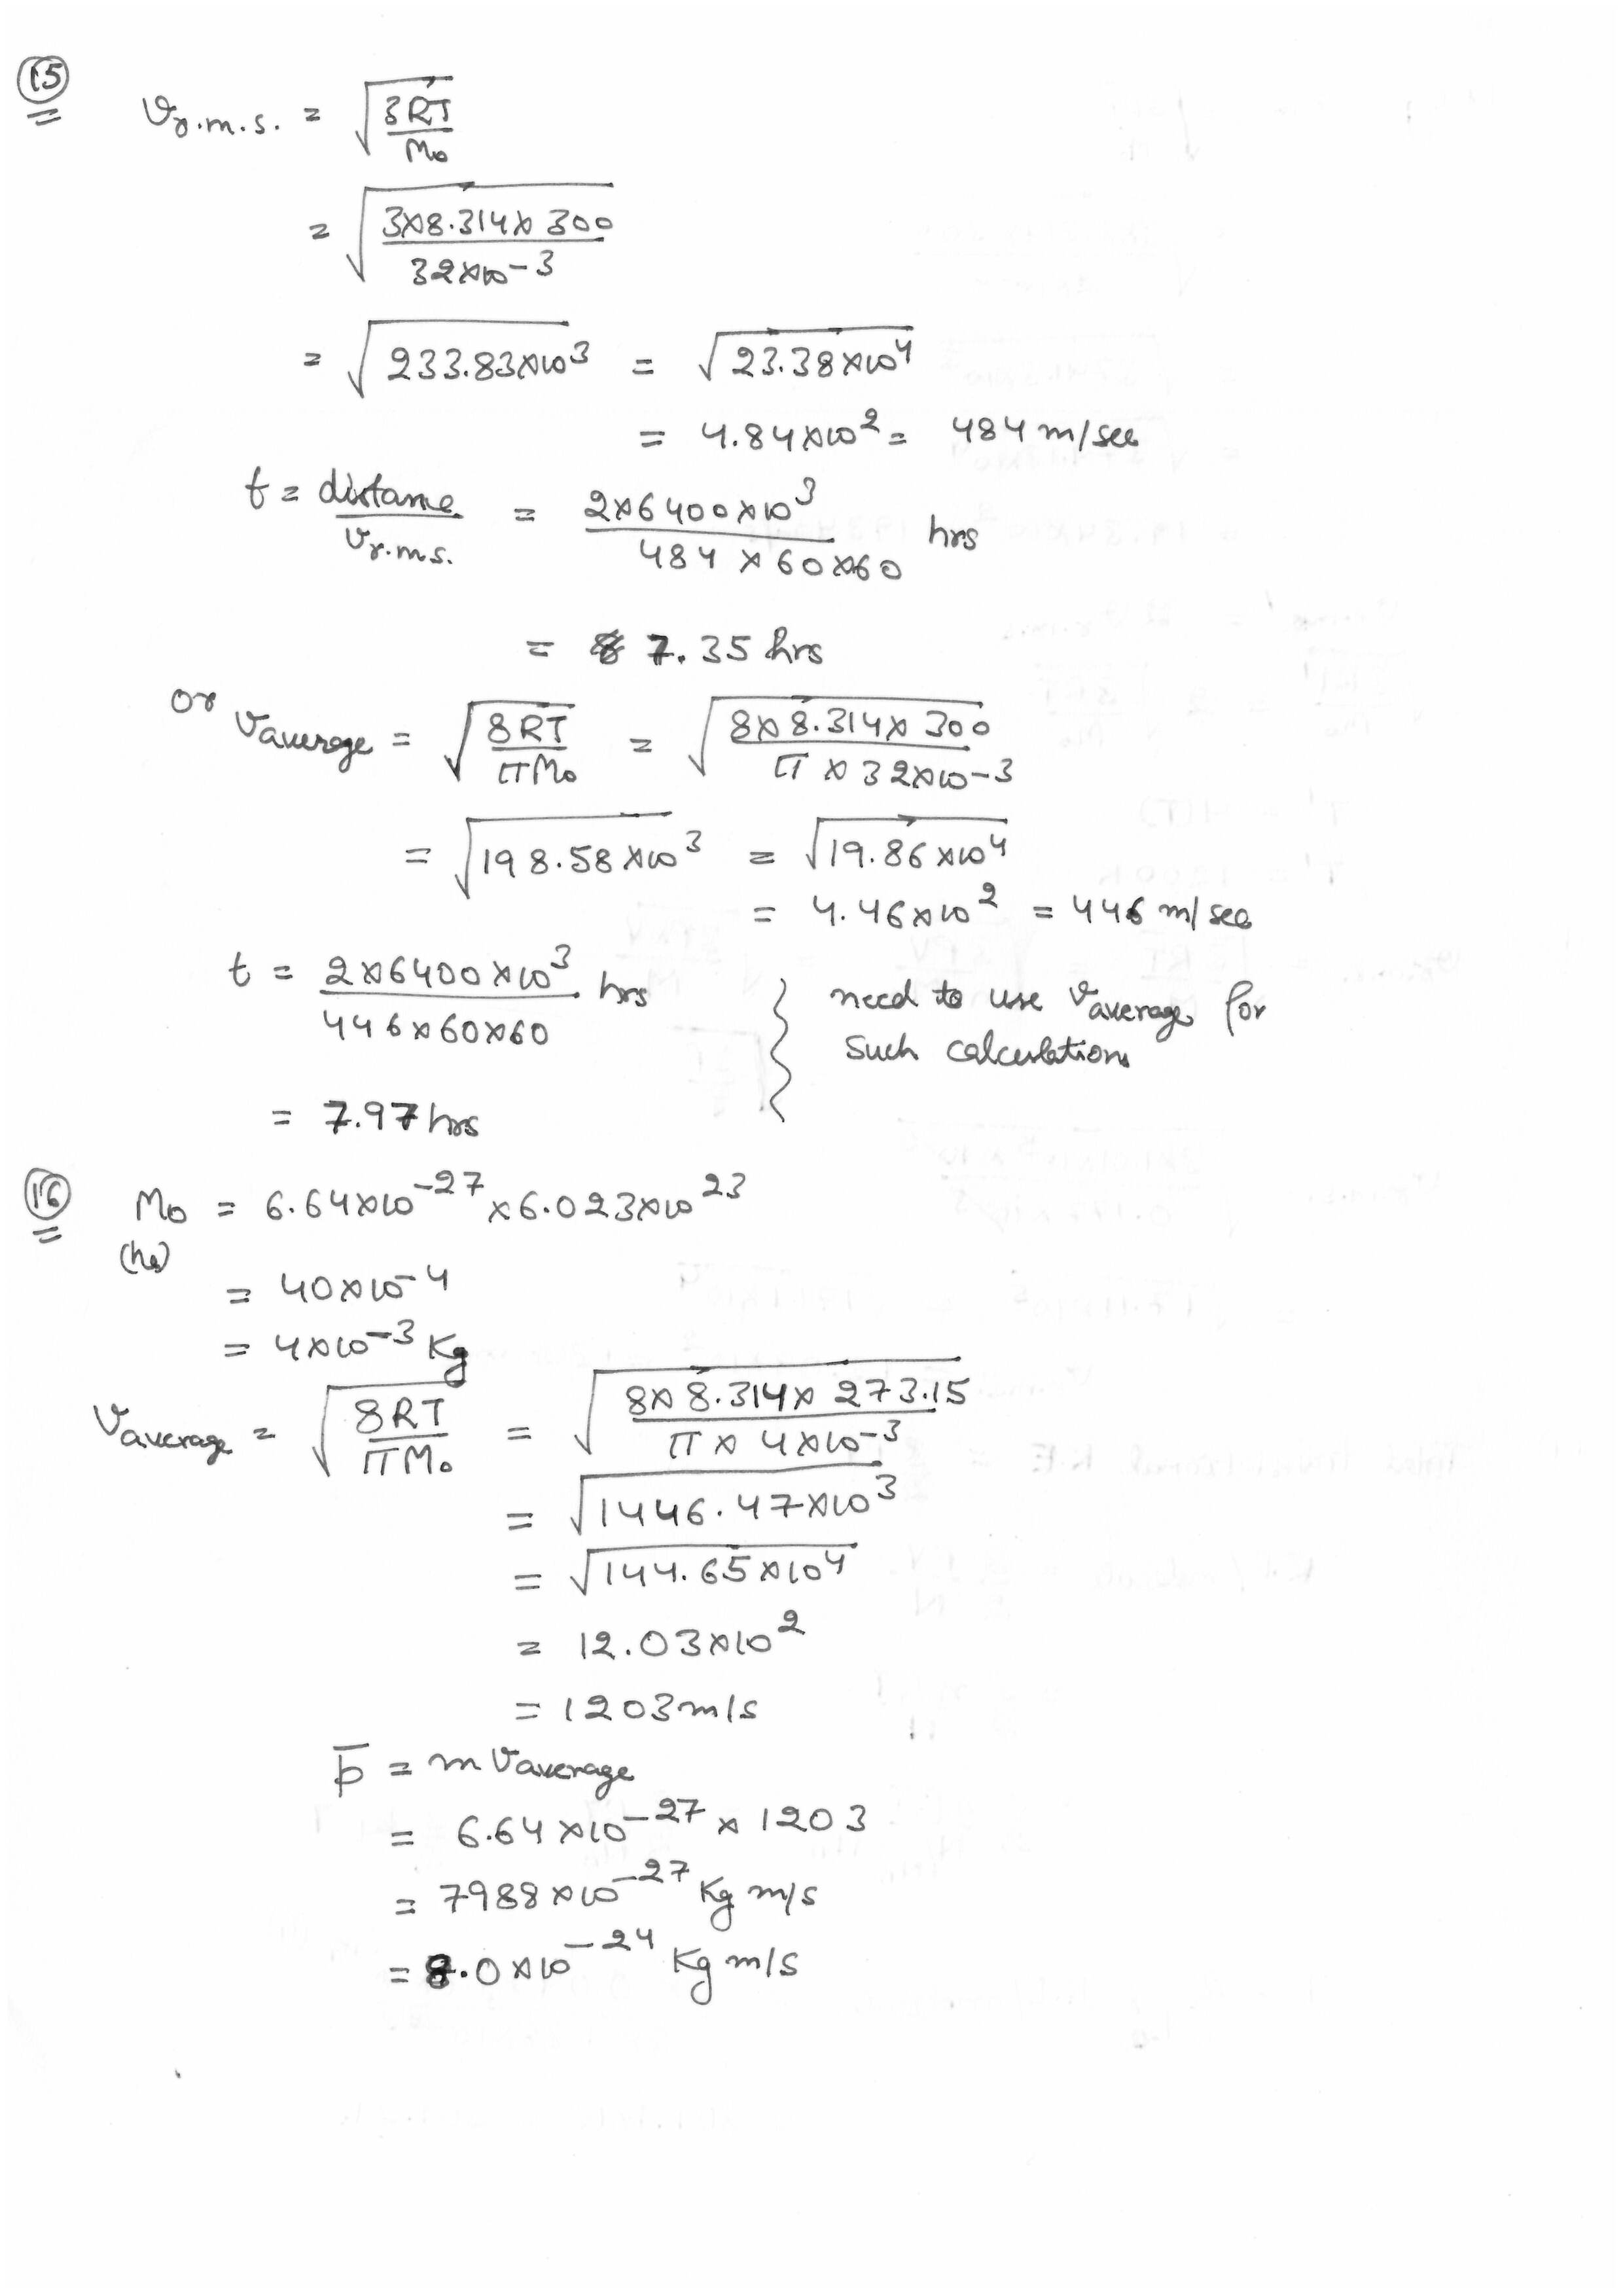 15
v r.m.s. = √(3RT/M₀)
= √(3×8.314×300 / 32×10⁻³)
= √(233.83×10³) = √(23.38×10⁴)
= 4.84×10² = 484 m/sec
t = distance / v r.m.s. = 2×6400×10³ / 484×60×60 hrs
= 7.35 hrs
or v average = √(8RT/πM₀) = √(8×8.314×300 / π×32×10⁻³)
= √(198.58×10³) = √(19.86×10⁴)
= 4.46×10² = 446 m/sec
t = 2×6400×10³ / 446×60×60 hrs } need to use v average for
such calculation
= 7.97 hrs
16
M₀ = 6.64×10⁻²⁷ × 6.023×10²³
(he)
= 40×10⁻⁴
= 4×10⁻³ Kg
v average = √(8RT/πM₀) = √(8×8.314×273.15 / π×4×10⁻³)
= √(1446.47×10³)
= √(144.65×10⁴)
= 12.03×10²
= 1203 m/s
p̅ = m v average
= 6.64×10⁻²⁷ × 1203
= 7988×10⁻²⁷ Kg m/s
= 8.0×10⁻²⁴ Kg m/s